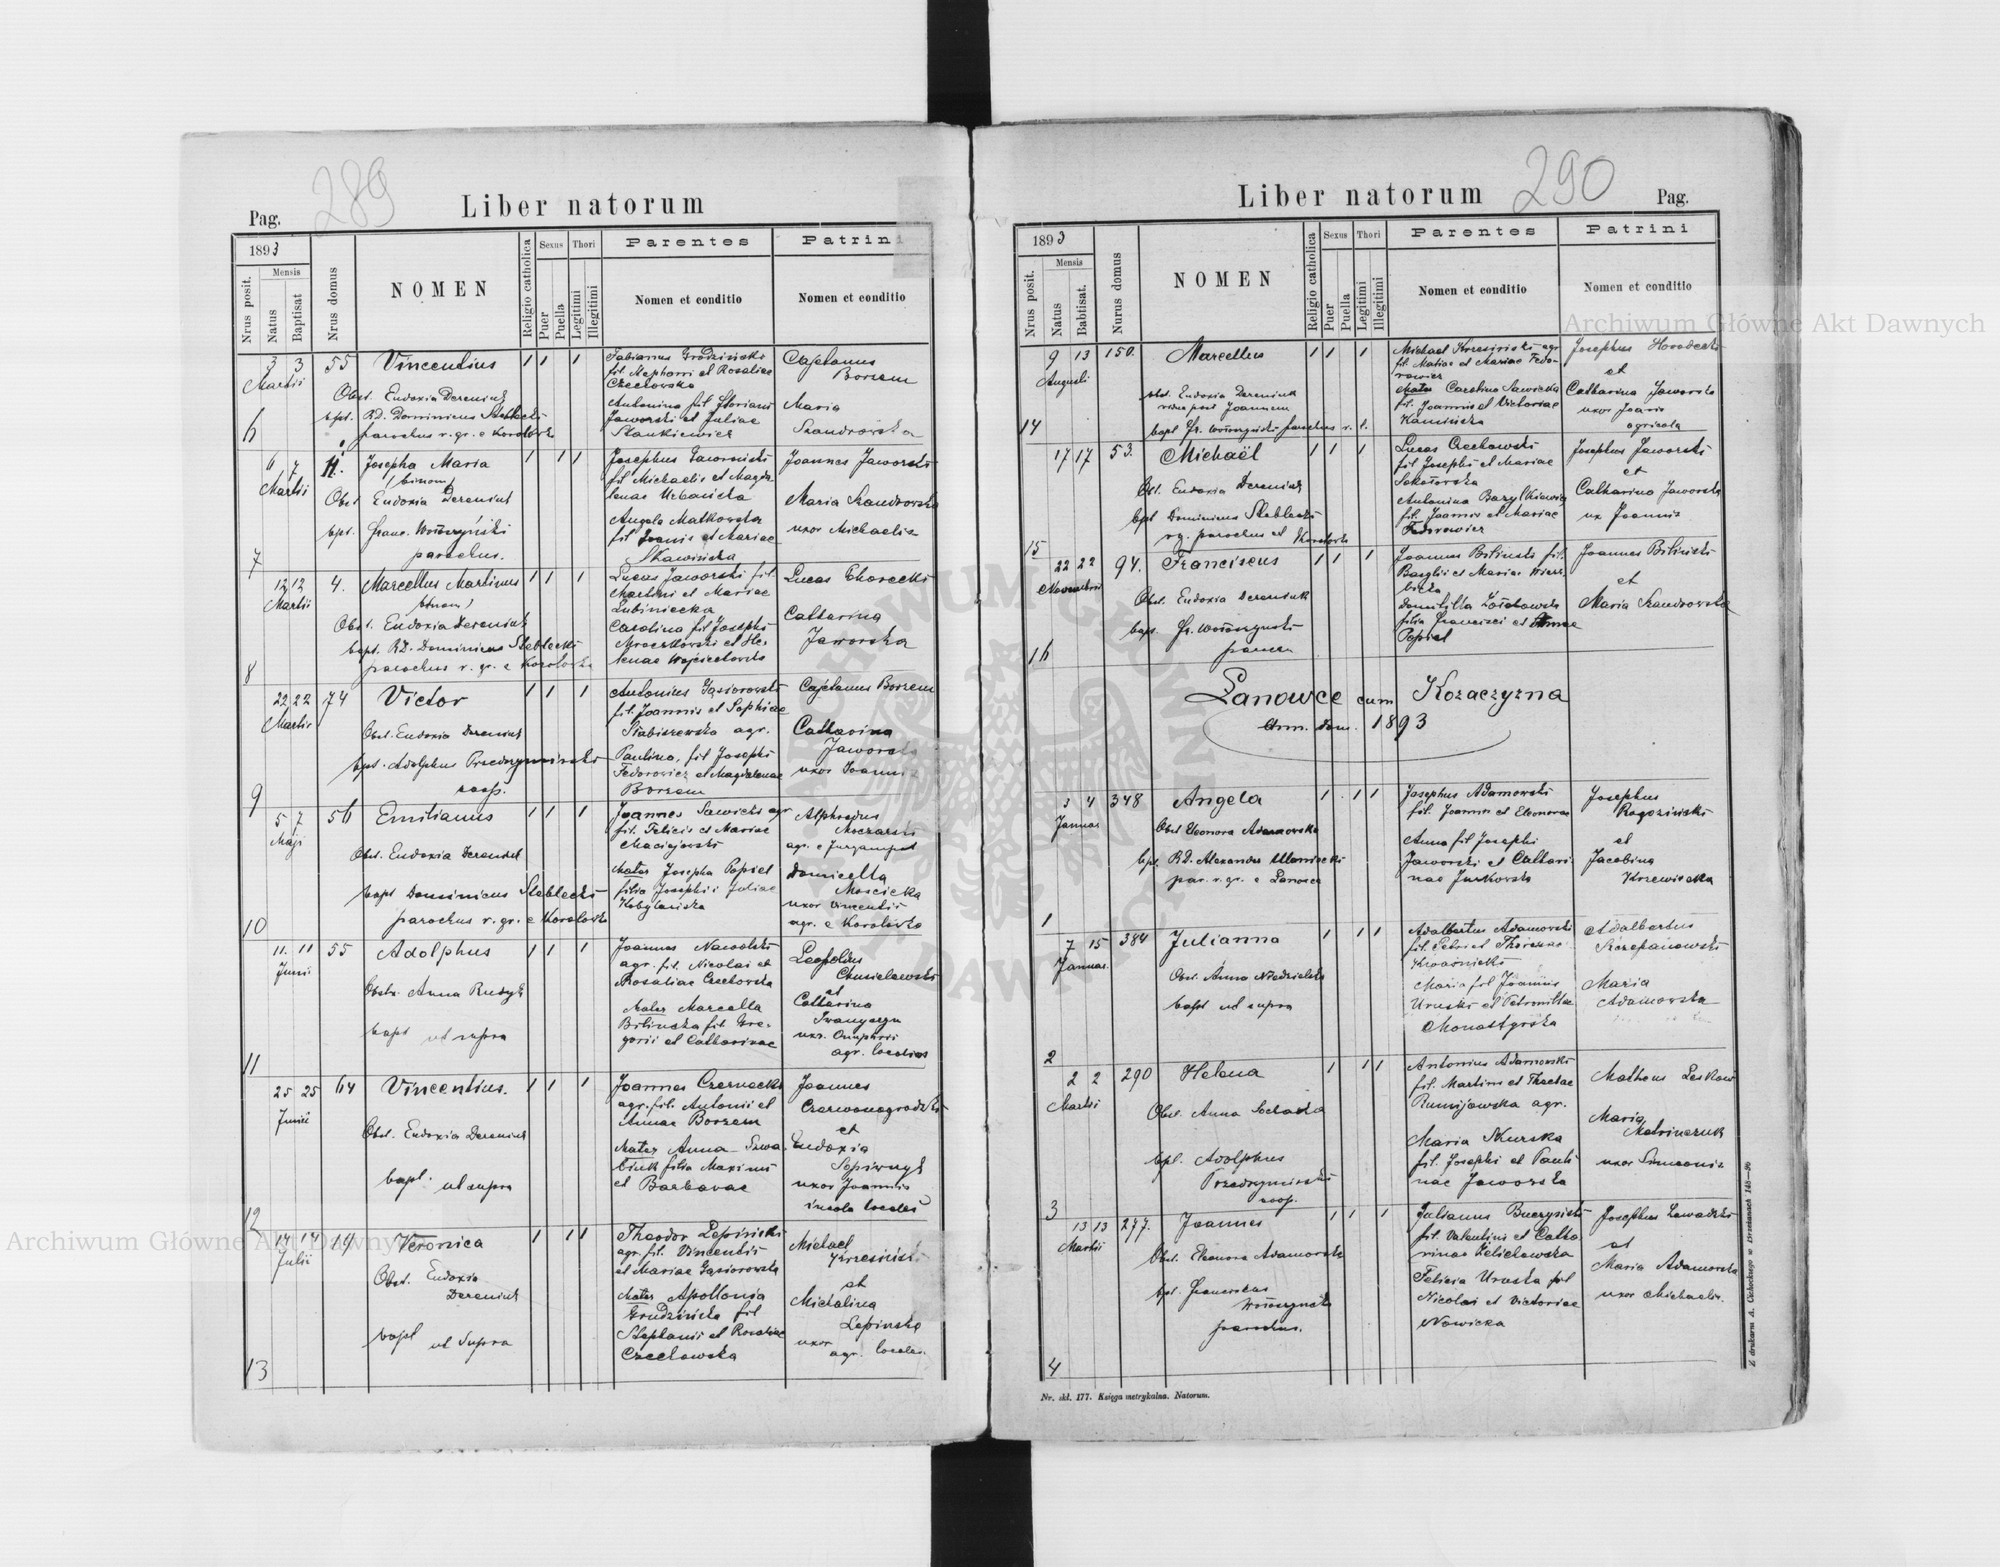 289
Liber natorum
Pag.
1893
Mensis
Nrus posit.
Natus
Baptisat
Nrus domus
NOMEN
Religio catholica
Sexus
Puer
Puella
Thori
Legitimi
Illegitimi
Parentes
Nomen et conditio
Patrini
Nomen et conditio
6
3 3
Martii
55
Vincentius
Obst. Eudoxia Dereniuk
bpt. RD. Dominicus Steblecki
parochus r. gr. e Korolówka
1 1 1
Fabianus Grodziński
fil. Stephani et Rosaliae
Czechowska
Antonina fil. Floriani
Jaworski et Juliae
Stankiewicz
Cajetanus
Borzem
Maria
Szandrowska
7
6 7
Martii
11.
Josepha Maria
(binom)
Obst. Eudoxia Dereniuk
bpt. Franc. Wołoszyński
parochus.
1 1 1
Josephus Jaworski
fil Michaelis et Magda-
lenae Urbanicka
Angela Matkowska
fil Joanis et Mariae
Skawińska
Joannes Jaworski
Maria Szandrowska
uxor Michaelis
8
12 12
Martii
4.
Marcellus Martinus
(binom)
Obst. Eudoxia Dereniuk
bapt. RD. Dominicus Steblecki
parochus r. gr. e Korolówka
1 1 1
Lucas Jaworski fil.
Martini et Mariae
Lubiniecka
Carolina fil Josephi
Mroczkowski et He-
lenae Wojciechowska
Lucas Chorecki
Catharina
Jaworska
9
22 22
Martii
74
Victor
Obst. Eudoxia Dereniuk
bpt. Adolphus Przedrzymirski
coop.
1 1 1
Antonius Gąsiorowski
fil. Joannis et Sophiae
Stabiszewska agr.
Paulina, fil Josephi
Fedorowicz et Magdalenae
Borzem
Cajetanus Borzem
Catharina
Jaworska
uxor Joannis
10
5 7
Maji
56
Emilianus
Obst. Eudoxia Dereniuk
bapt Dominicus Steblecki
parochus r. gr. e Korolówka
1 1 1
Joannes Sawicki agr
fil. Felicis et Mariae
Maciejowski
Mater Josepha Popiel
filia Josephi et Juliae
Kobylańska
Alphonsus
Moczarski
Domicella
Mościcka
uxor Vincentii
agr. e Korolówka
11
11. 11
Junii
55
Adolphus
Obstr. Anna Rudyk
bapt ut supra
1 1 1
Joannes Nawolski
agr. fil. Nicolai et
Rosaliae Czechowska
Mater Marcella
Bilinska fil. Gre-
gorii et Catharinae
Leopoldus
Chmielewski
et
Catharina
Iwanyszyn
uxr. Onuphrii
agr. locales
12
25 25
Junii
64
Vincentius.
Obst. Eudoxia Dereniuk
bapt. ut supra
1 1 1
Joannes Czernecki
agr. fil. Antonii et
Annae Borzem
Mater Anna Sawa-
biuk filia Maximi
et Barbarae
Joannes
Czerwonogrodzki
et
Eudoxia
Sopiwnyk
uxor Joannis
incola locales
13
14 14
Julii
19
Veronica
Obst. Eudoxia
Dereniuk
bapt ut Supra
1 1 1
Theodor Lepiniski
agr. fil. Vincentii
et Mariae Gąsiorowska
Mater Apollonia
Grudzińska fil
Stephanii et Rosaliae
Czechowska
Michael
Krzesiński
et
Michalina
Lepinska
uxor
agr. locales.
290
Liber natorum
Pag.
1893
Mensis
Nrus posit.
Natus
Babtisat.
Nurus domus
NOMEN
Religio catholica
Sexus
Puer
Puella
Thori
Legitimi
Illegitimi
Parentes
Nomen et conditio
Patrini
Nomen et conditio
14
9 13
Augusti
150.
Marcellus
obst. Eudoxia Dereniuk
vidua post Joannem
bapt Fr. Wołoszyński parochus r. l.
1 1 1
Michael Krzesiński agr
fil. Matiae et Mariae Fedo-
rowicz
Mater Carolina Sawicka
fil. Joannis et Victoriae
Kamińska
Josephus Horodecki
et
Catharina Jaworska
uxor Joanis
agricola
15
17 17
53.
Michaël
Obst. Eudoxia Dereniuk
bpt Dominicus Steblecki
rg. parochus et Korolówka
1 1 1
Lucas Czechowski
fil Josephi et Mariae
Sokołowska
Antonina Bazylkiewicz
fil. Joannis et Mariae
Fedorowicz
Josephus Jaworski
et
Catharina Jaworska
ux Joannis
16
22 22
Novembris
94.
Franciscus
Obst. Eudoxia Dereniuk
bapt. Fr. Wołoszyński
1 1 1
Joannes Bilinski fil.
Bazylii et Mariae Wierz-
bicka
Domitilla Zółchowska
filia Francisci et Annae
Popiel
Joannes Biliński
et
Maria Szandrowska
Lanowce cum Kozaczyzna
Ann. Dom. 1893
1
3 4
Januar
348
Angela
Obst Eleonora Adamowska
bpt. RD. Alexander Ulwnicki
par. r. gr. e Lanowce
1 1 1
Josephus Adamowski
fil. Joannis et Eleonorae
Anna fil Josephi
Jaworski et Cathari-
nae Jurkowska
Josephus
Rogoziński
et
Jacobina
Krzewińska
2
7 15
Januar.
384
Julianna
Obst. Anna Niedzielska
bapt ut supra
1 1 1
Adalbertus Adamowski
fil. Petri et Theresiae
Krasnicki
Maria fil Joannis
Uruski et Petronillae
Monastyrska
Adalbertus
Szczepanowski
Maria
Adamowska
3
2 2
Martii
290
Helena
Obst. Anna Sochacka
bpt. Adolphus
Przedrzymirski
coop.
1 1 1
Antonius Adamowski
fil. Martini et Theclae
Rumijowska agr.
Maria Skurska
fil. Josephi et Pauli-
nae Jaworska
Matheus Leskow
Maria
Matwinczuk
uxor Simeonis
4
13 13
Martii
277.
Joannes
Obst. Eleonora Adamowska
bpt. Franciscus
Wołoszyński
parochus.
1 1 1
Julianus Buczyński
fil. Valentini et Catha-
rinae Zelichowska
Felicia Uruska fil
Nicolai et Victoriae
Nowicka
Josephus Zawadzki
et
Maria Adamowska
uxor Michaelis.
Nr. skł. 177. Księga metrykalna. Natorum.
Z drukarni A. Cichockiego w Brzeżanach 148—90
Archiwum Główne Akt Dawnych
Archiwum Główne Akt Dawnych
ARCHIWUM GŁÓWNE AKT DAWNYCH